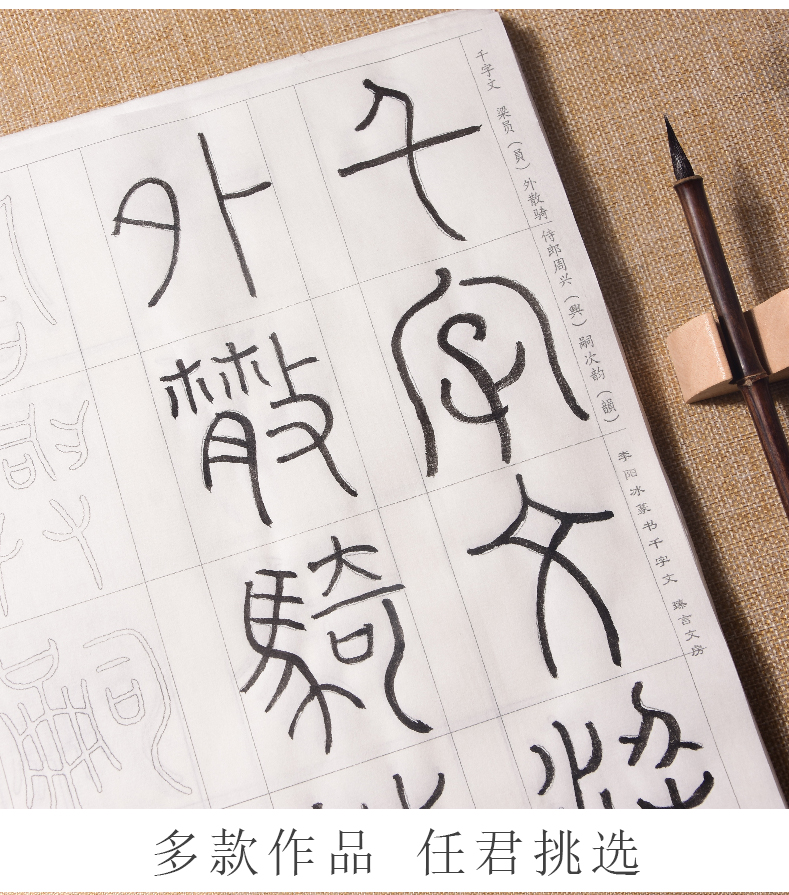 千字文 梁员（員）外散骑侍郎周兴（興）嗣次韵（韻）
李阳冰篆书千字文 臻言文房
千字文梁
外散騎
嗣
多款作品 任君挑选